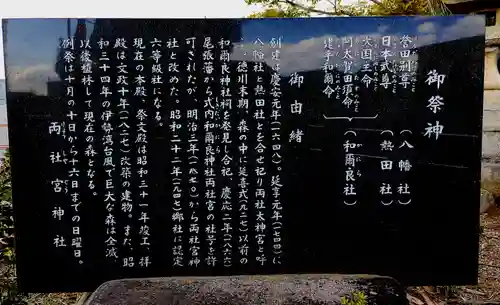 御祭神
誉田別尊（八幡社）
日本武尊（熱田社）
大国主命
阿太賀田須命（和爾良社）
建手和爾命
御由緒
創建は慶安元年（一六四八）。延享元年（一七四四）に
八幡社と熱田社とを合せ祀り両社太神宮と呼
ぶ。徳川末期、森の中に延喜式（九二七）以前の
和爾良神社祠を発見し合祀。慶応二年（一八六六）
尾張藩から式内和爾良神社両社宮の社号を許
可されたが、明治三年（一八七〇）から両社宮神
社と改めた。昭和二十二年（一九四七）郷社に認定
六等級社になる。
現在の本殿、祭文殿は昭和三十一年竣工、拝
殿は文政十年（一八二七）改築の建物。また、昭
和三十四年の伊勢湾台風で巨大な森は全滅、
以後植林して現在の森となる。
例祭は十月の十日から十六日までの日曜日。
両社宮神社